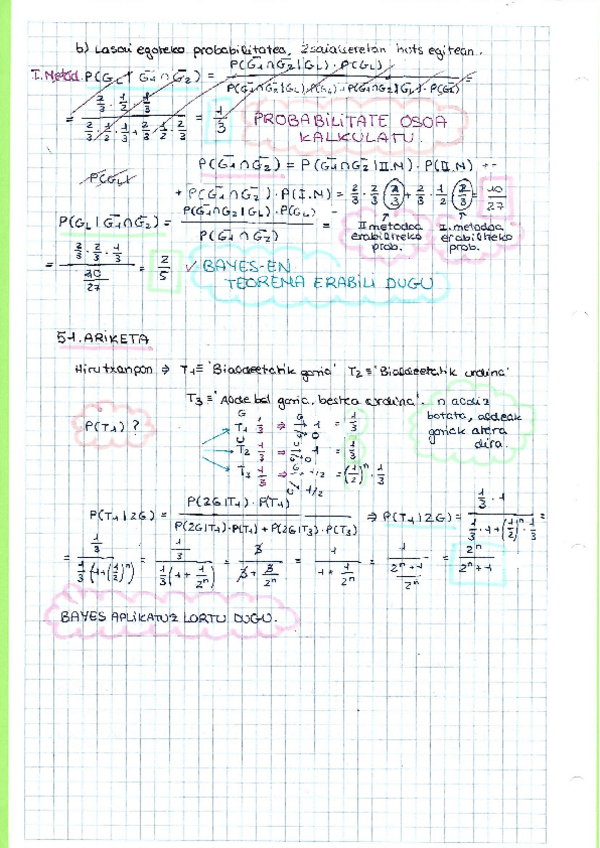 b) Lasai egoteko probabilitatea, 2 saiakeretan huts egitean.
I. Metod. P(GL | Ḡ1∩Ḡ2) = P(Ḡ1∩Ḡ2|GL)·P(GL) / P(Ḡ1∩Ḡ2|GL)·P(GL)+P(Ḡ1∩Ḡ2|ḠL)·P(ḠL) =
= 2/3·1/2·1/3 / 2/3·1/2·1/3+2/3·1/2·2/3 = 1/3
PROBABILITATE OSOA
KALKULATU.
P(GL)
P(Ḡ1∩Ḡ2) = P(Ḡ1∩Ḡ2|II.M)·P(II.M) +
+ P(Ḡ1∩Ḡ2)·P(I.M) = 2/3·2/3·1/3+2/3·1/2·2/3 = 10/27
P(GL|Ḡ1∩Ḡ2) = P(Ḡ1∩Ḡ2|GL)·P(GL) / P(Ḡ1∩Ḡ2) =
II metodoa erabiltzeko prob.
I. metodoa erabiltzeko prob.
= 2/3·2/3·1/3 / 10/27 = 2/5
✓ BAYES-EN
TEOREMA ERABILI DUGU
51. ARIKETA
Hiru txanpon ⇒ T1≡ 'Bi aldeetatik gorria' T2≡ 'Bi aldeetatik urdina'
T3≡ 'Alde bat gorria, bestea urdina'.
n aldiz
botata, aldeak
gorriak atera
dira.
P(T1)?
T1 1/3 ⇒ G/1 U/0 = 1/3
T2 1/3 ⇒ G/0 U/1 = 1/3
T3 1/3 ⇒ G/1/2 U/1/2 = (1/2)^n · 1/3
P(T1|2G) = P(2G|T1)·P(T1) / P(2G|T1)·P(T1)+P(2G|T3)·P(T3) ⇒ P(T1|2G) = 1/3·1 / 1/3·1+(1/2)^n·1/3 =
= 1/3 / 1/3(1+(1/2)^n) = 1/3 / 1/3(1+1/2^n) = 3 / 3+3/2^n = 1 / 1+1/2^n = 1 / 2^n+1/2^n = 2^n / 2^n+1
BAYES APLIKATUZ LORTU DUGU.